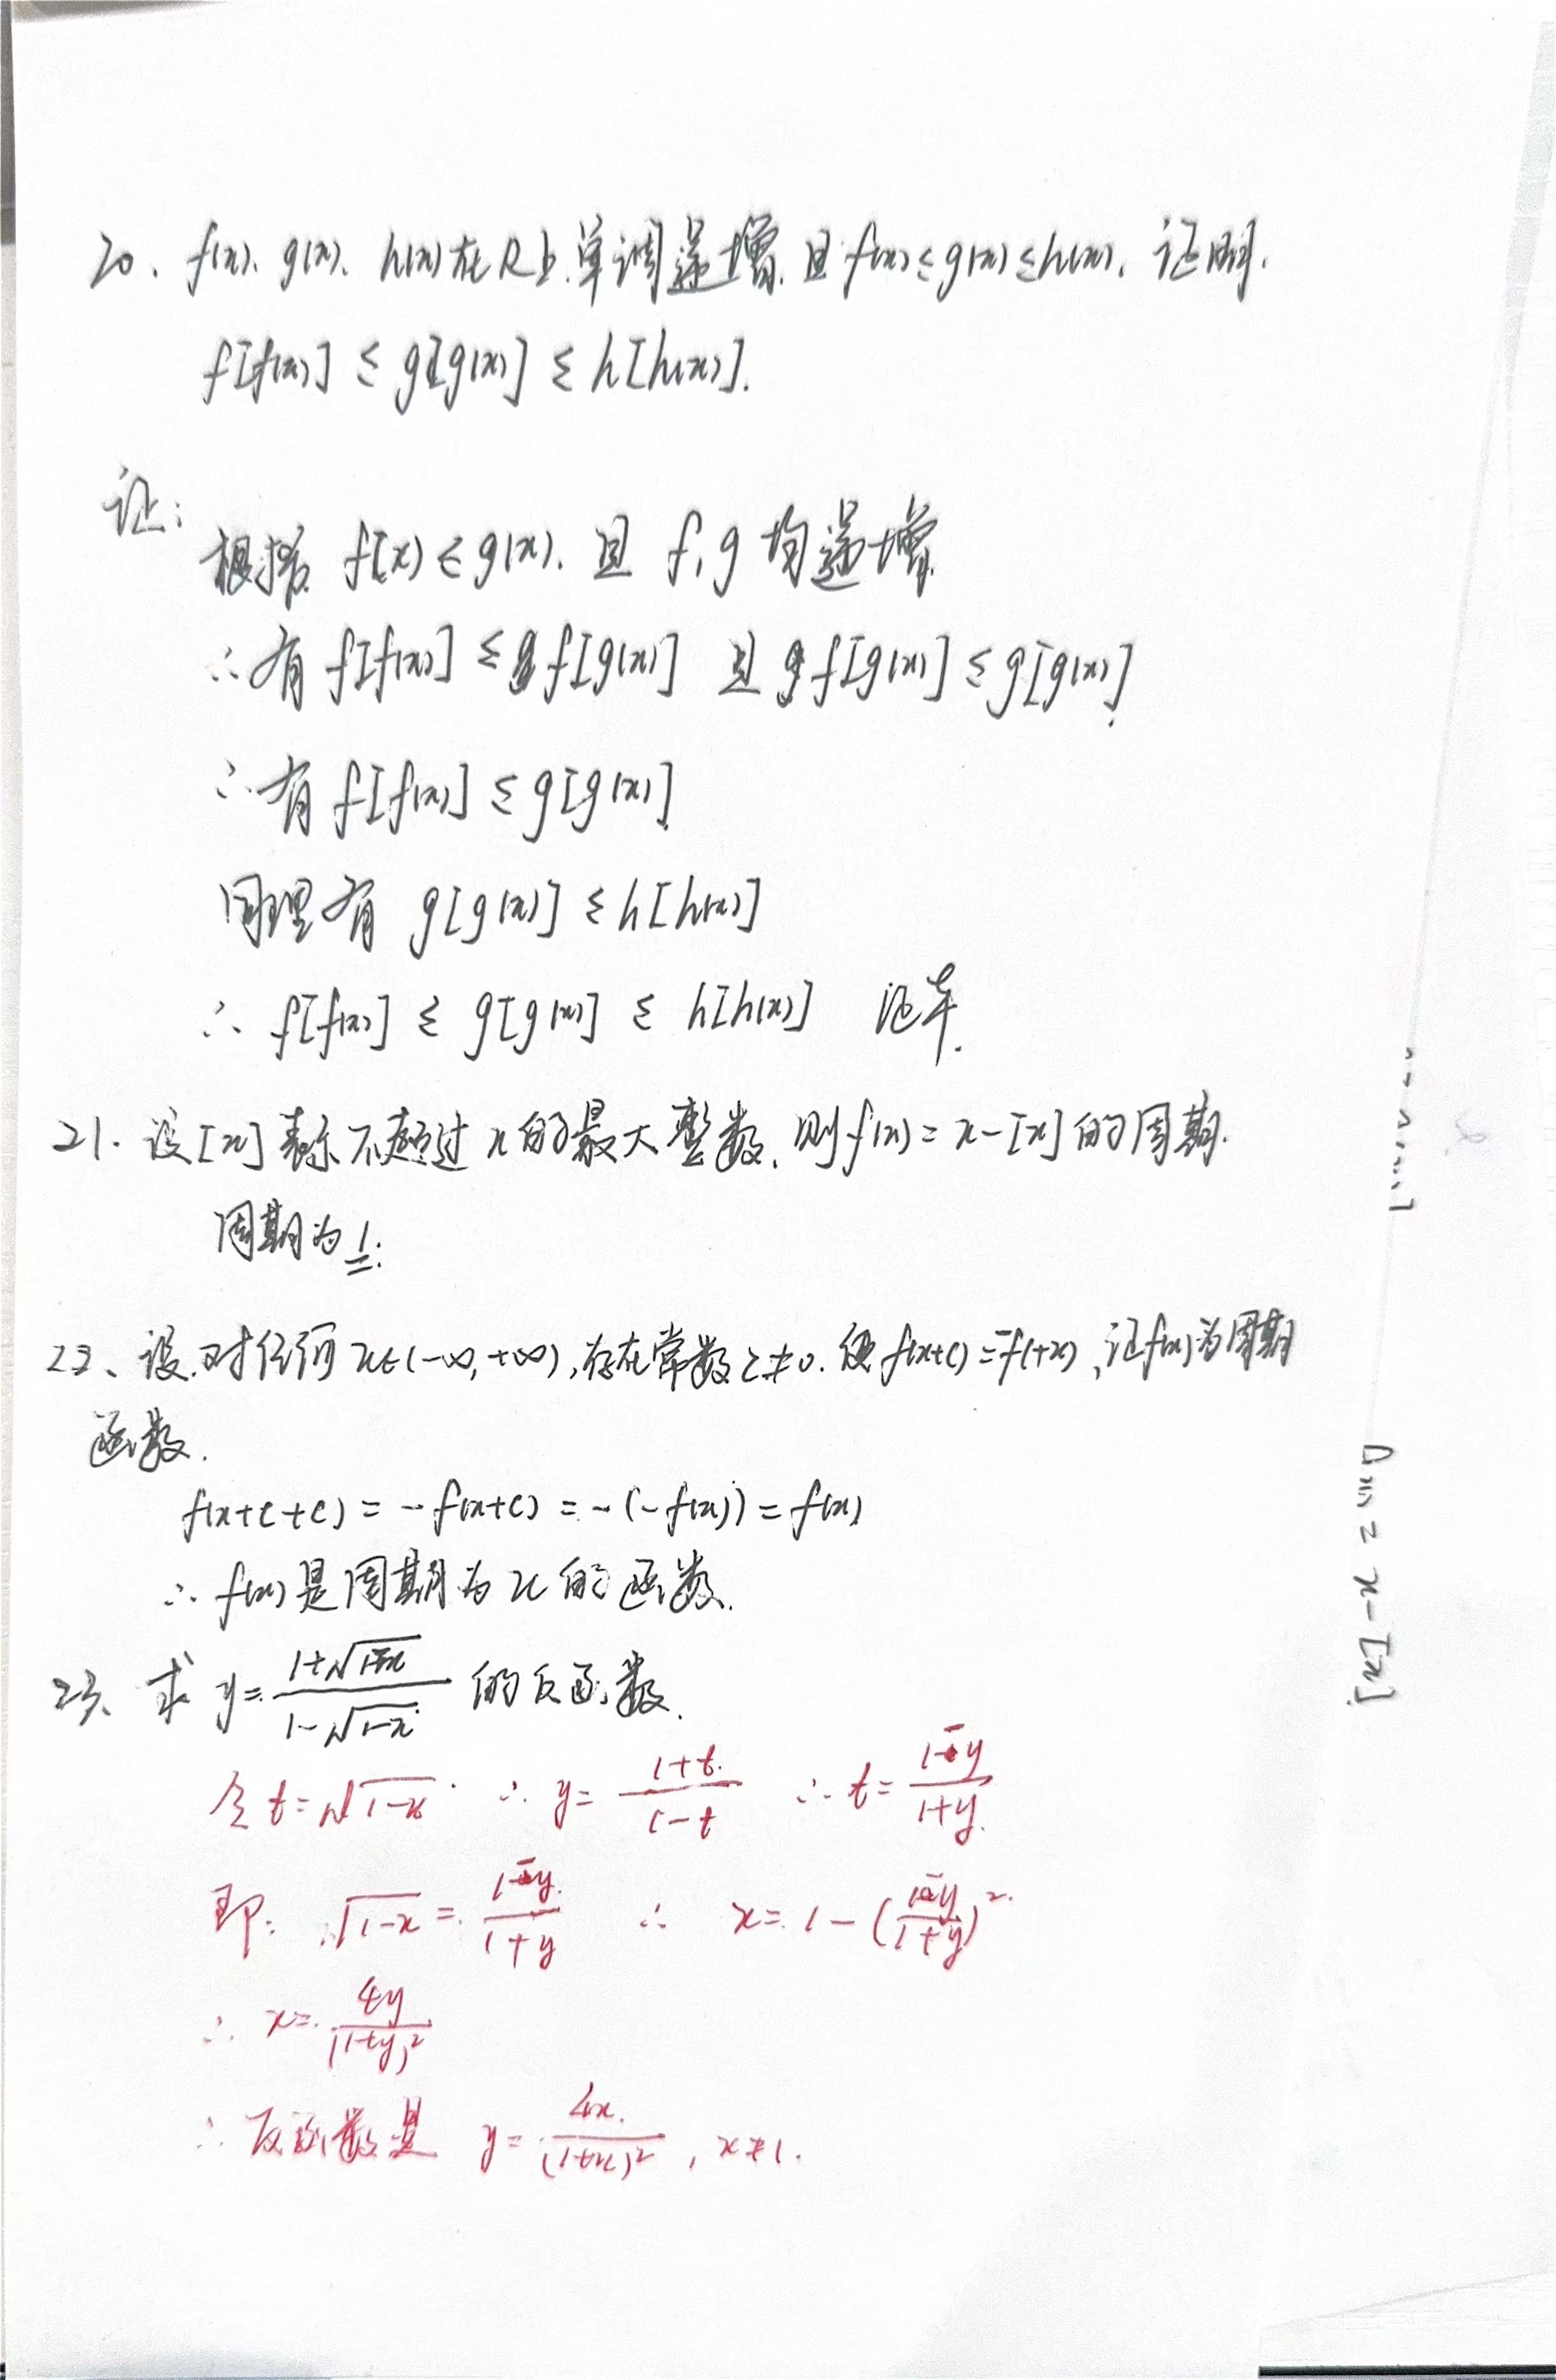 20、f(x)、g(x)、h(x)在R上单调递增,且f(x)≤g(x)≤h(x),证明.
f[f(x)] ≤ g[g(x)] ≤ h[h(x)].
证:
根据 f(x)≤g(x). 且 f,g 均递增.
∴有 f[f(x)] ≤ f[g(x)] 且 f[g(x)] ≤ g[g(x)]
∴有 f[f(x)] ≤ g[g(x)]
同理有 g[g(x)] ≤ h[h(x)]
∴ f[f(x)] ≤ g[g(x)] ≤ h[h(x)] 证毕.
21. 设[x]表示不超过x的最大整数,则f(x)=x-[x]的周期.
周期为1.
22、设对任何x∈(-∞,+∞),存在常数c≠0.使f(x+c)=-f(x),证f(x)为周期
函数.
f(x+c+c) = -f(x+c) = -(-f(x)) = f(x)
∴ f(x)是周期为2c的函数.
23、求 y= (1+√(1-x))/(1-√(1-x)) 的反函数.
令 t=√(1-x) ∴ y= (1+t)/(1-t) ∴ t= (1-y)/(1+y)
即: √(1-x) = (1-y)/(1+y) ∴ x= 1-((1-y)/(1+y))²
∴ x= 4y/(1+y)²
∴ 反函数是 y= 4x/(1+x)² , x≠1.
f(x) = x-[x]